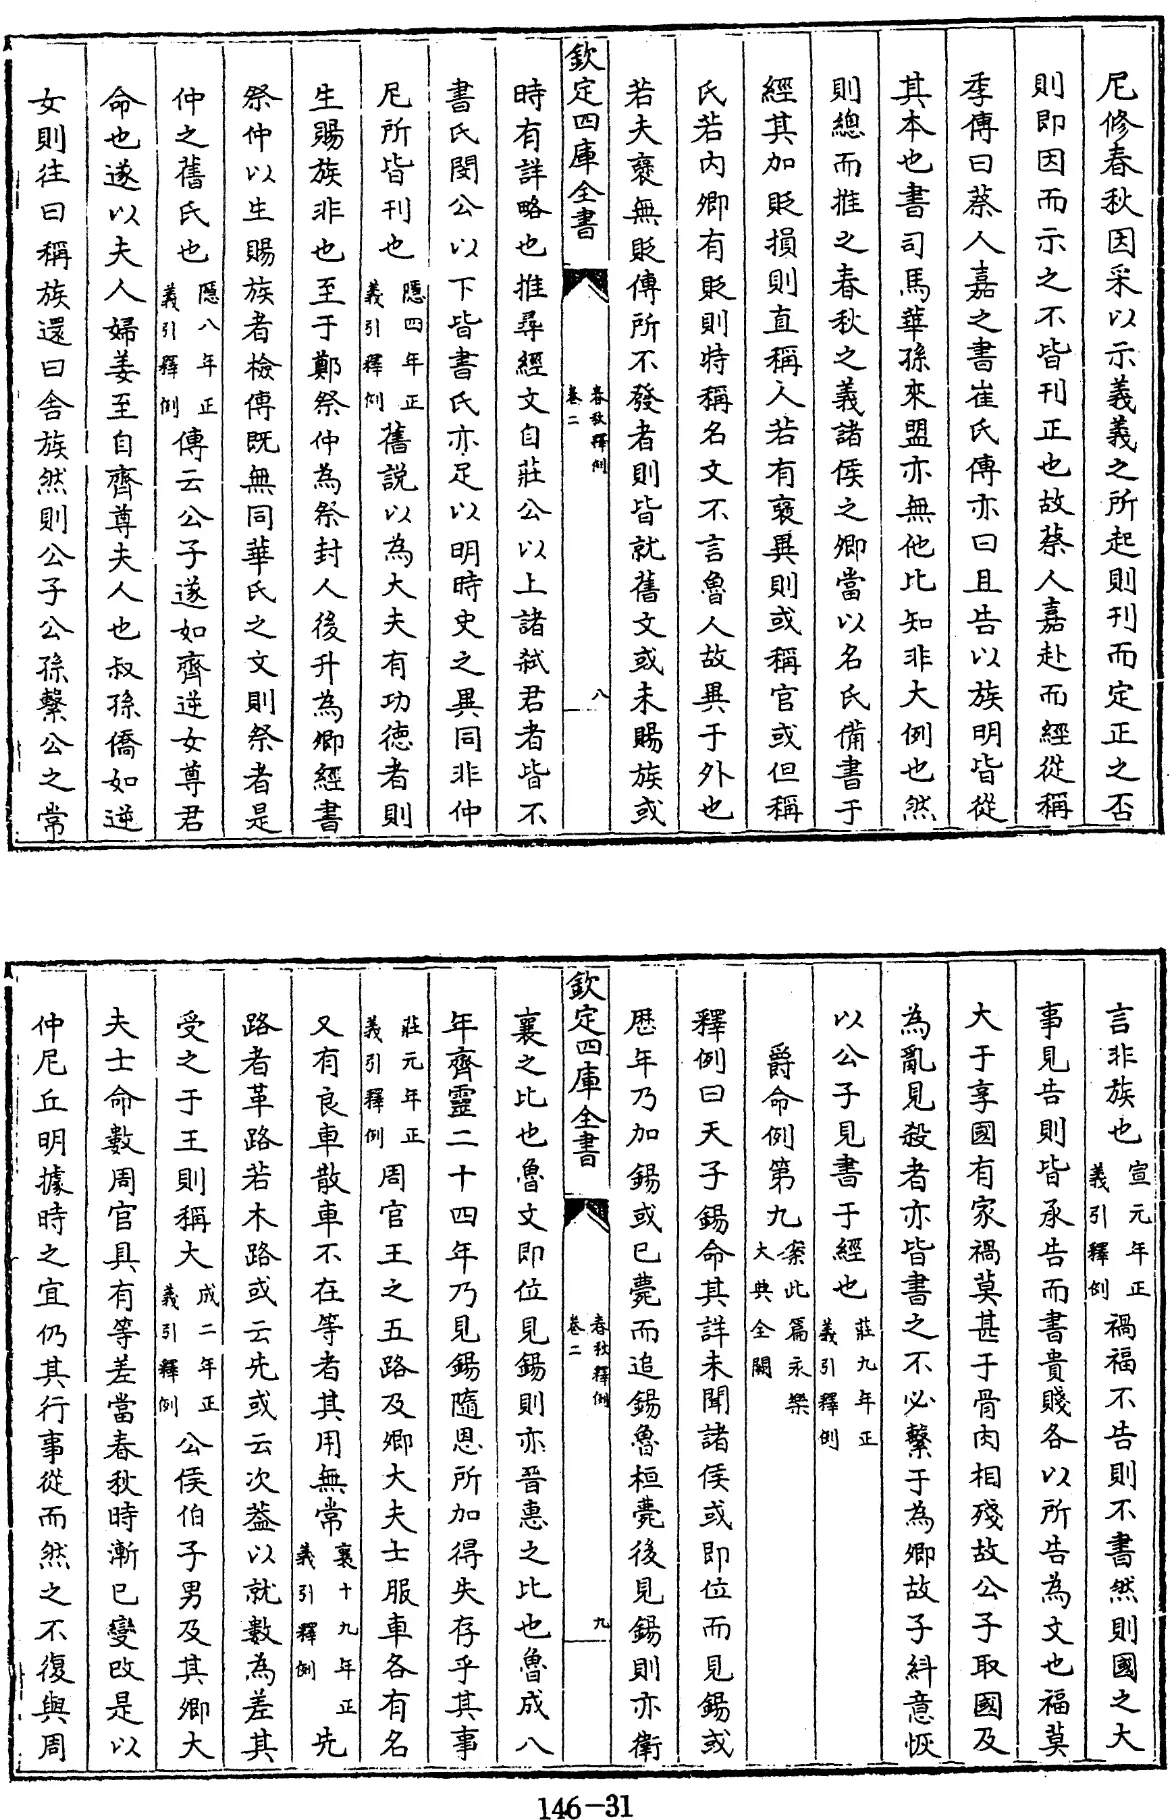 尼修春秋因采以示義義之所起則刊而定正之否
則即因而示之不皆刊正也故蔡人嘉赴而經從稱
季傳曰蔡人嘉之書崔氏傳亦曰且告以族明皆從
其本也書司馬華孫來盟亦無他比知非大例也然
則總而推之春秋之義諸侯之卿當以名氏備書于
經其加貶損則直稱人若有襃異則或稱官或但稱
氏若内卿有貶則特稱名文不言魯人故異于外也
若夫襃無貶傳所不發者則皆就舊文或未賜族或
欽定四庫全書
春秋釋例
卷二
八
時有詳略也推尋經文自莊公以上諸弑君者皆不
書氏閔公以下皆書氏亦足以明時史之異同非仲
尼所皆刊也隱四年正義引釋例舊説以為大夫有功德者則
生賜族非也至于鄭祭仲為祭封人後升為卿經書
祭仲以生賜族者檢傳既無同華氏之文則祭者是
仲之舊氏也隱八年正義引釋例傳云公子遂如齊逆女尊君
命也遂以夫人婦姜至自齊尊夫人也叔孫僑如逆
女則往曰稱族還曰舍族然則公子公孫繫公之常
言非族也宣元年正義引釋例禍福不告則不書然則國之大
事見告則皆承告而書貴賤各以所告為文也福莫
大于享國有家禍莫甚于骨肉相殘故公子取國及
為亂見殺者亦皆書之不必繫于為卿故子糾意恢
以公子見書于經也莊九年正義引釋例
爵命例第九案此篇永樂大典全闕
釋例曰天子錫命其詳未聞諸侯或即位而見錫或
歴年乃加錫或已薨而追錫魯桓薨後見錫則亦衛
欽定四庫全書
春秋釋例
卷二
九
襄之比也魯文即位見錫則亦晉惠之比也魯成八
年齊靈二十四年乃見錫隨恩所加得失存乎其事
莊元年正義引釋例周官王之五路及卿大夫士服車各有名
又有良車散車不在等者其用無常襄十九年正義引釋例先
路者革路若木路或云先或云次葢以就數為差其
受之于王則稱大成二年正義引釋例公侯伯子男及其卿大
夫士命數周官具有等差當春秋時漸已變改是以
仲尼丘明據時之宜仍其行事從而然之不復與周
146-31